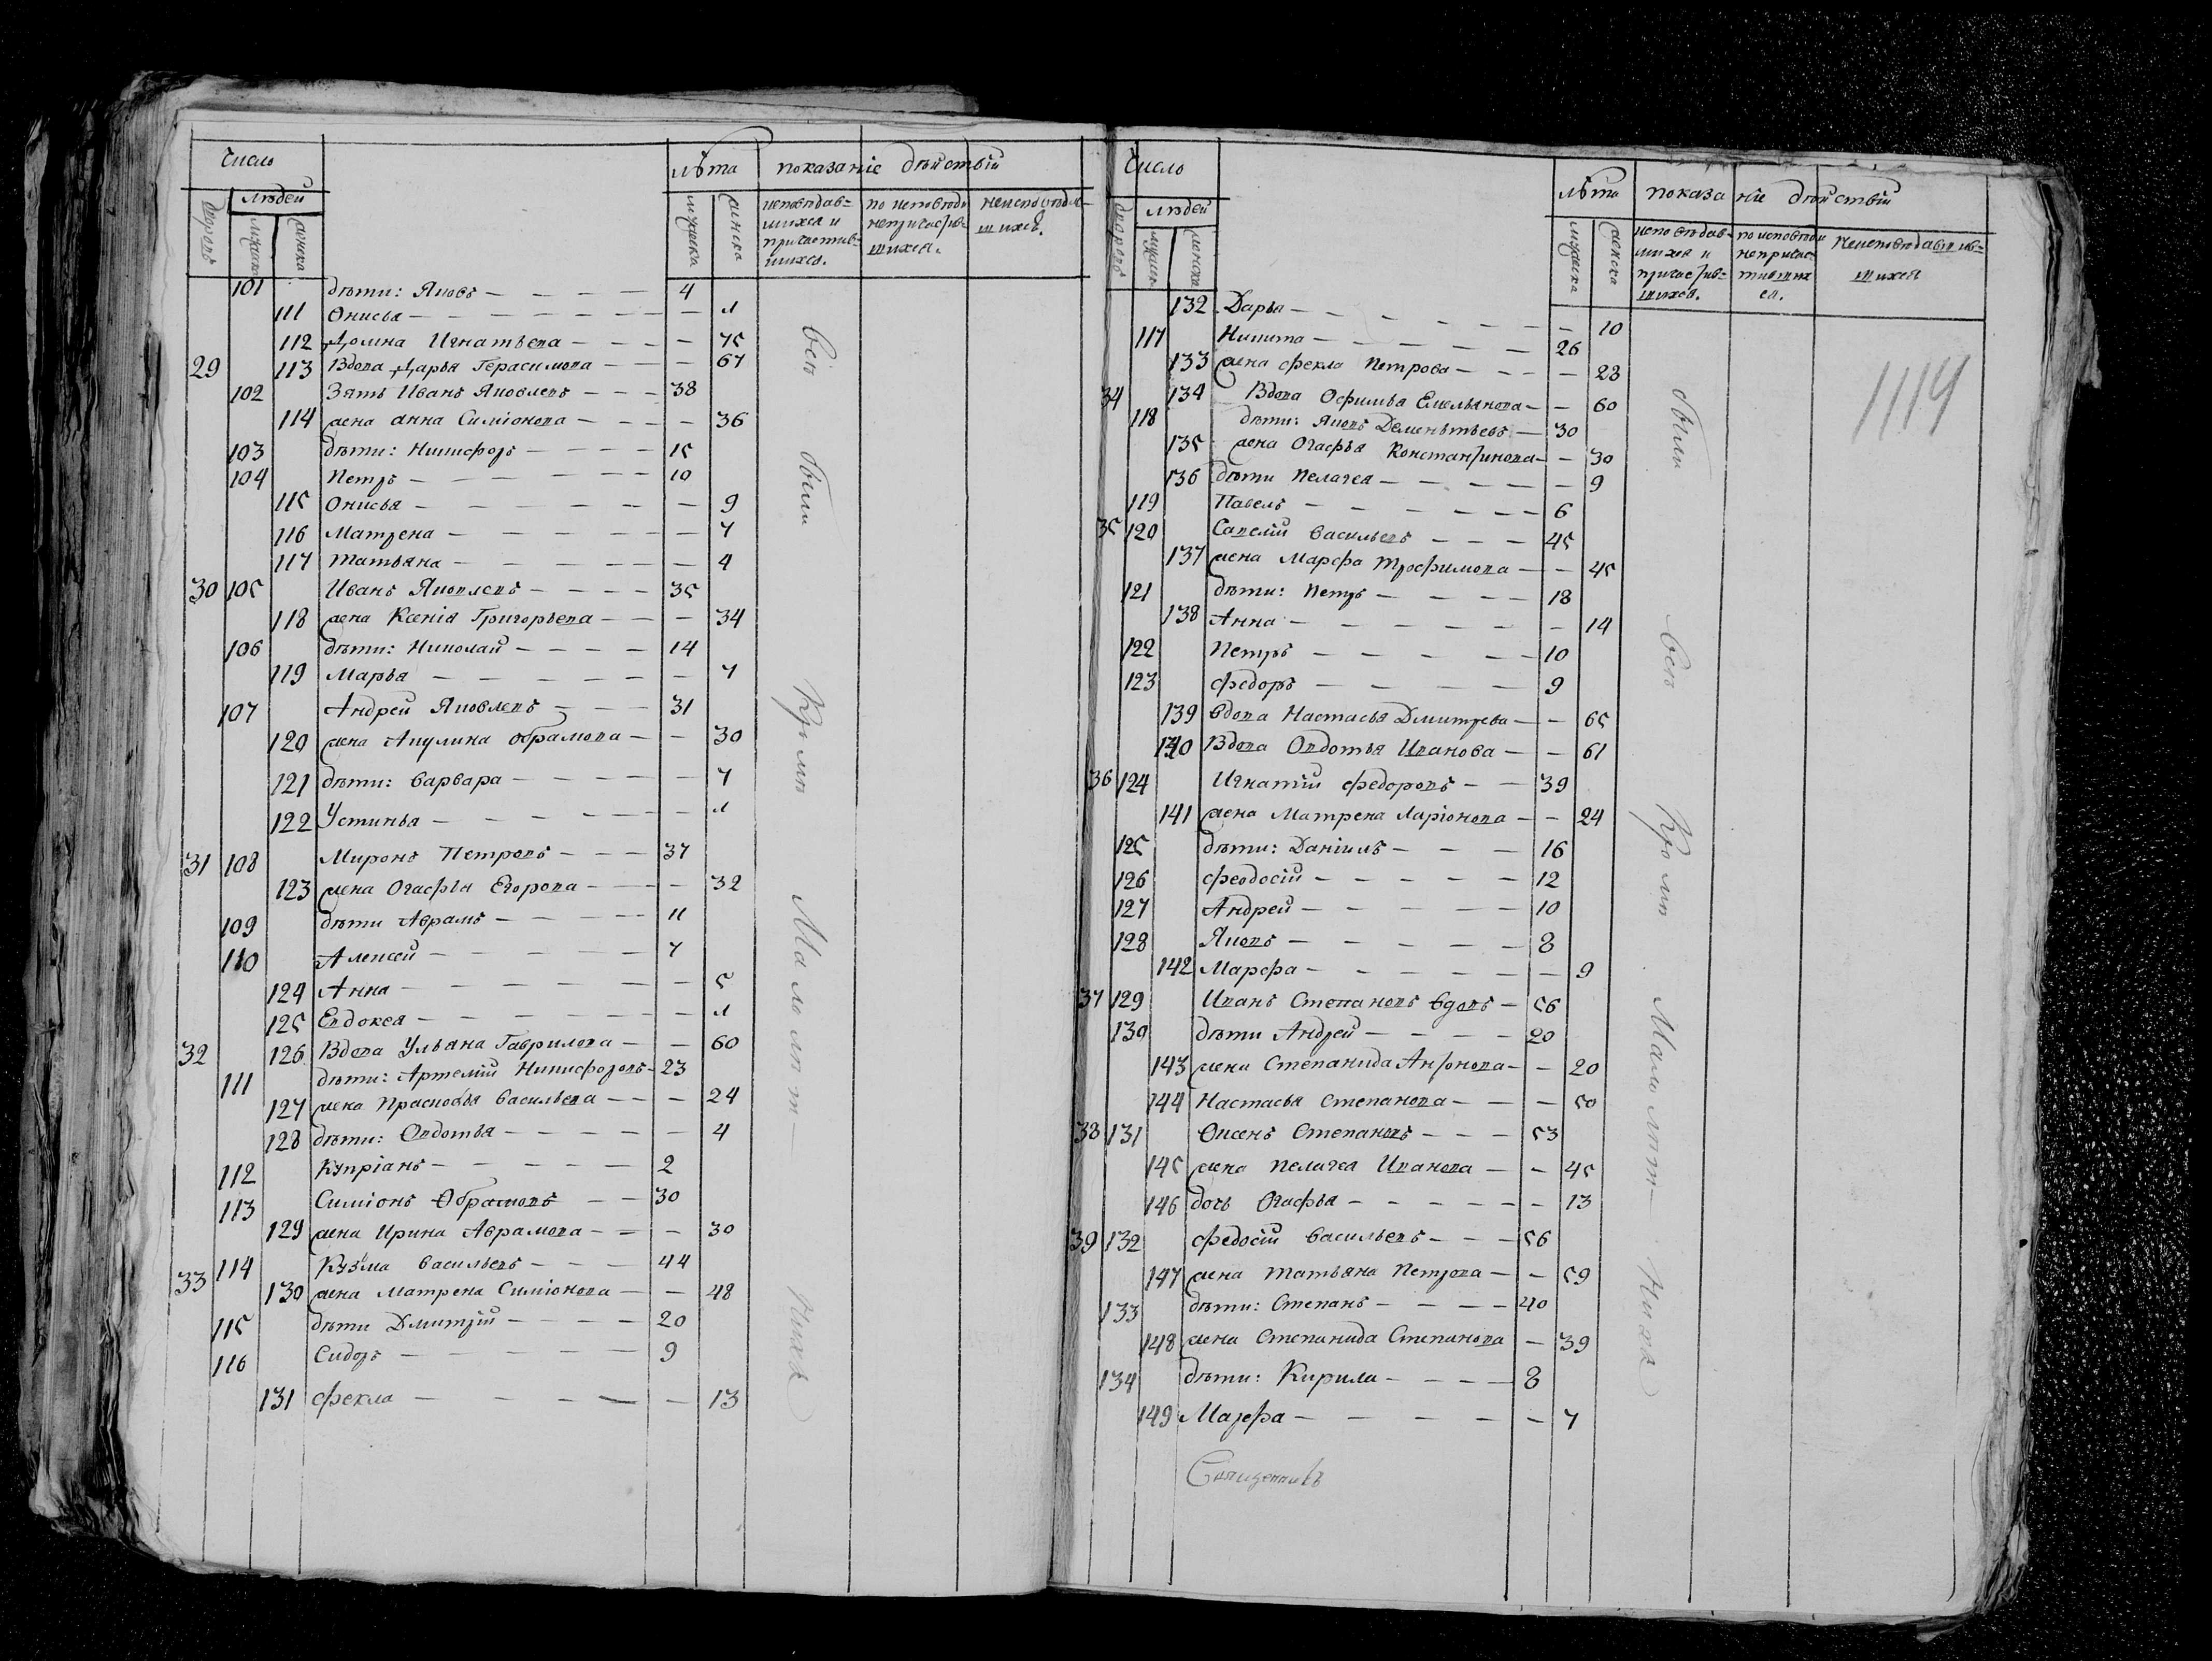 Число
лѣта показаніе дѣйствій
людей
дворовъ
мужска
женска
мужеска
женска
исповѣдав-
шихся и
причастив-
шихся.
по исповѣди
непричастив-
шихся.
неисповѣдав-
шихся.
101 дѣти: Яковъ — 4
111 Онисья — 1
112 Домна Игнатьева — 75
29 113 Вдова Дарья Герасимова — 67
102 Зять Иванъ Яковлевъ — 38
114 жена Анна Симіонова — 36
103 дѣти: Никифоръ — 15
104 Петръ — 10
115 Онисья — 9
116 Матрена — 7
117 Татьяна — 4
30 105 Иванъ Яковлевъ — 35
118 жена Ксенія Григорьева — 34
106 дѣти: Николай — 14
119 Марья — 7
107 Андрей Яковлевъ — 31
120 жена Акулина Обрамова — 30
121 дѣти: Варвара — 7
122 Устинья — 1
31 108 Миронъ Петровъ — 37
123 жена Огафья Егорова — 32
109 дѣти Аврамъ — 11
110 Алексей — 7
124 Анна — 5
125 Евдокея — 1
32 126 Вдова Ульяна Гаврилова — 60
111 дѣти: Артемій Никифоровъ — 23
127 жена Прасковья Васильева — 24
128 дѣти: Овдотья — 4
112 Купріанъ — 2
113 Симіонъ Обрамовъ — 30
129 жена Ирина Аврамова — 30
33 114 Кузма Васильевъ — 44
130 жена Матрена Симіонова — 48
115 дѣти Дмитрій — 20
116 Сидоръ — 9
131 Фекла — 13
всѣ были Кромѣ Малолѣт— нихъ
Число
лѣта показаніе дѣйствій
людей
дворовъ
мужеск
женска
мужеска
женска
исповѣдав-
шихся и
причастив-
шихся.
по исповѣди
непричас-
тивших
ся.
неисповѣдавав-
шихся
1114
132 Дарья — 10
117 Никита — 26
133 жена Фекла Петрова — 23
34 134 Вдова Офимья Емельянова — 60
118 дѣти: Яковъ Дементьевъ — 30
135 жена Огафья Константинова — 30
136 дѣти Пелагея — 9
119 Павелъ — 6
35 120 Савелій Васильевъ — 45
137 жена Марфа Трофимова — 45
121 дѣти: Петръ — 18
138 Анна — 14
122 Петръ — 10
123 Федоръ — 9
139 вдова Настасья Дмитрева — 65
140 Вдова Овдотья Иванова — 61
36 124 Игнатій Федоровъ — 39
141 жена Матрена Ларіонова — 24
125 дѣти: Даніилъ — 16
126 Феодосій — 12
127 Андрей — 10
128 Яковъ — 8
142 Марфа — 9
37 129 Иванъ Степановъ вдовъ — 56
130 дѣти Андрей — 20
143 жена Степанида Антонова — 20
144 Настасья Степанова — 50
38 131 Оксенъ Степановъ — 53
145 жена Пелагея Иванова — 45
146 дочь Огафья — 13
39 132 Федосій Васильевъ — 56
147 жена Татьяна Петрова — 59
133 дѣти: Степанъ — 40
148 жена Степанида Степанова — 39
134 дѣти: Кирила — 8
149 Марфа — 7
были всѣ Кромѣ Малолѣт— нихъ
Священникъ